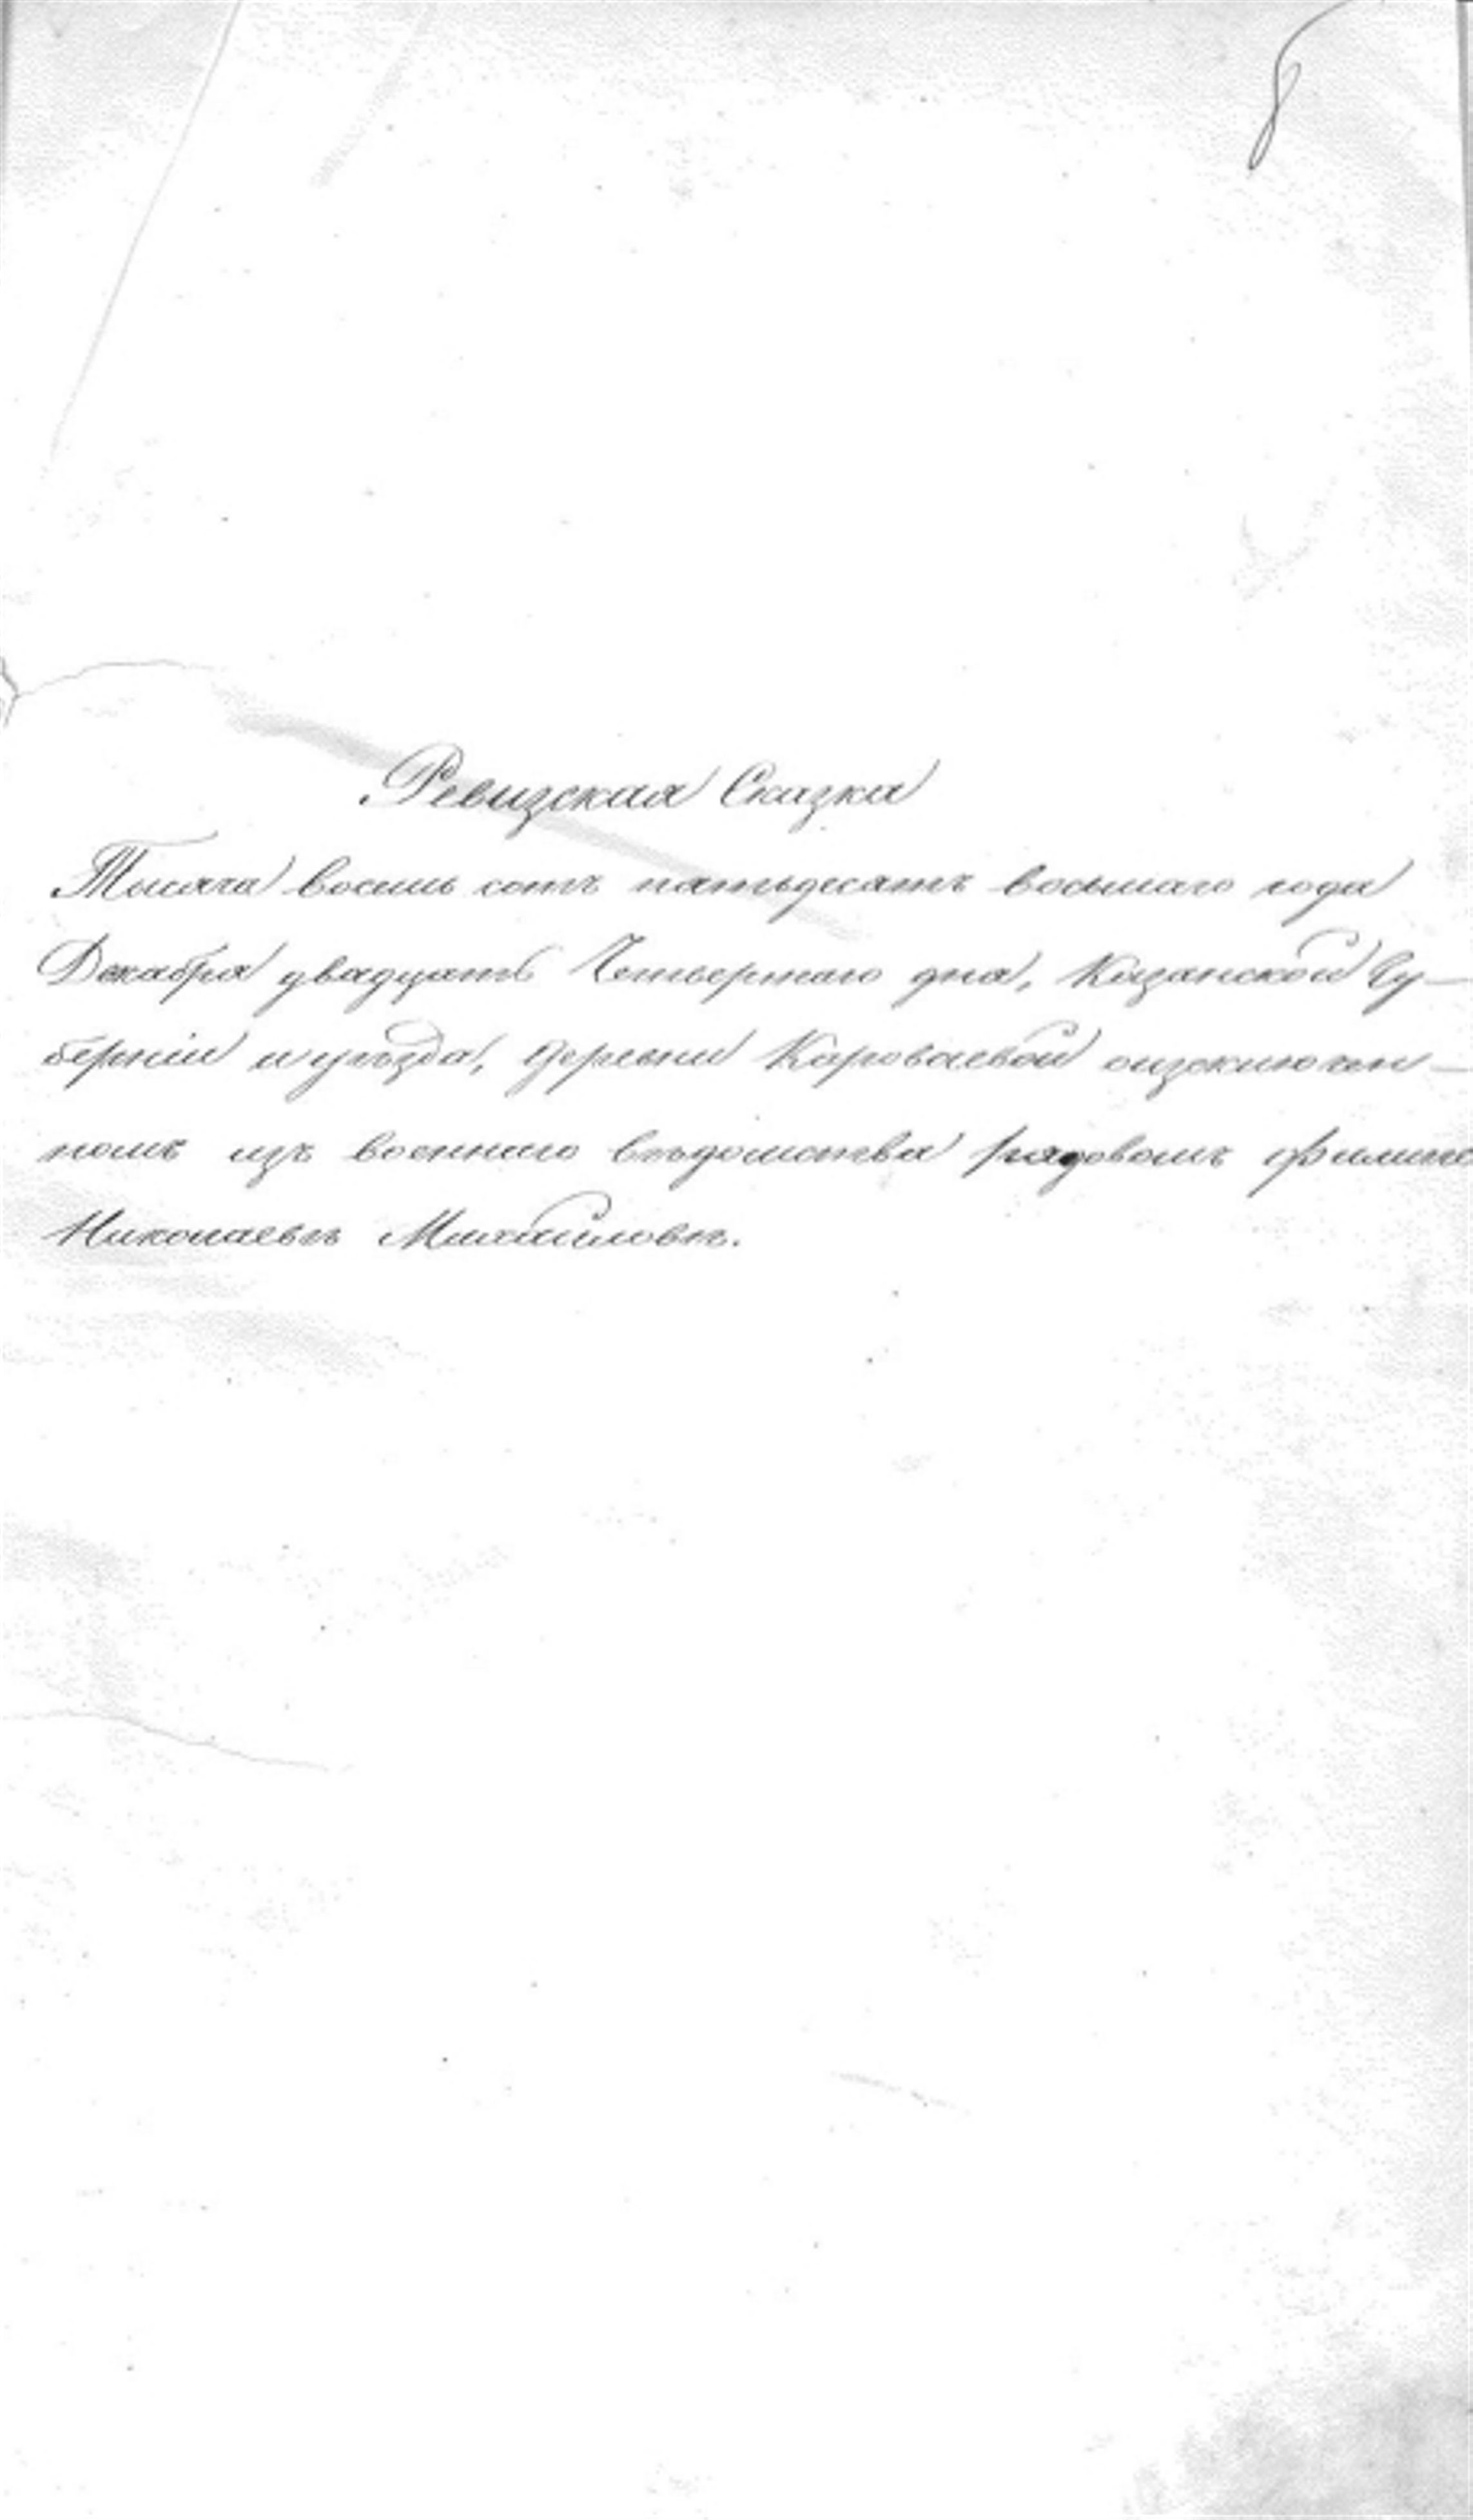 8
Ревизская Сказка
Тысяча восемь сотъ пятьдесятъ восьмаго года
Декабря двадцать Четвертаго дня, Казанской Гу-
берніи и уѣзда, деревни Караваевой оизключен-
номъ изъ военнаго вѣдомства рядовомъ Филипѣ
Николаевѣ Михайловѣ.